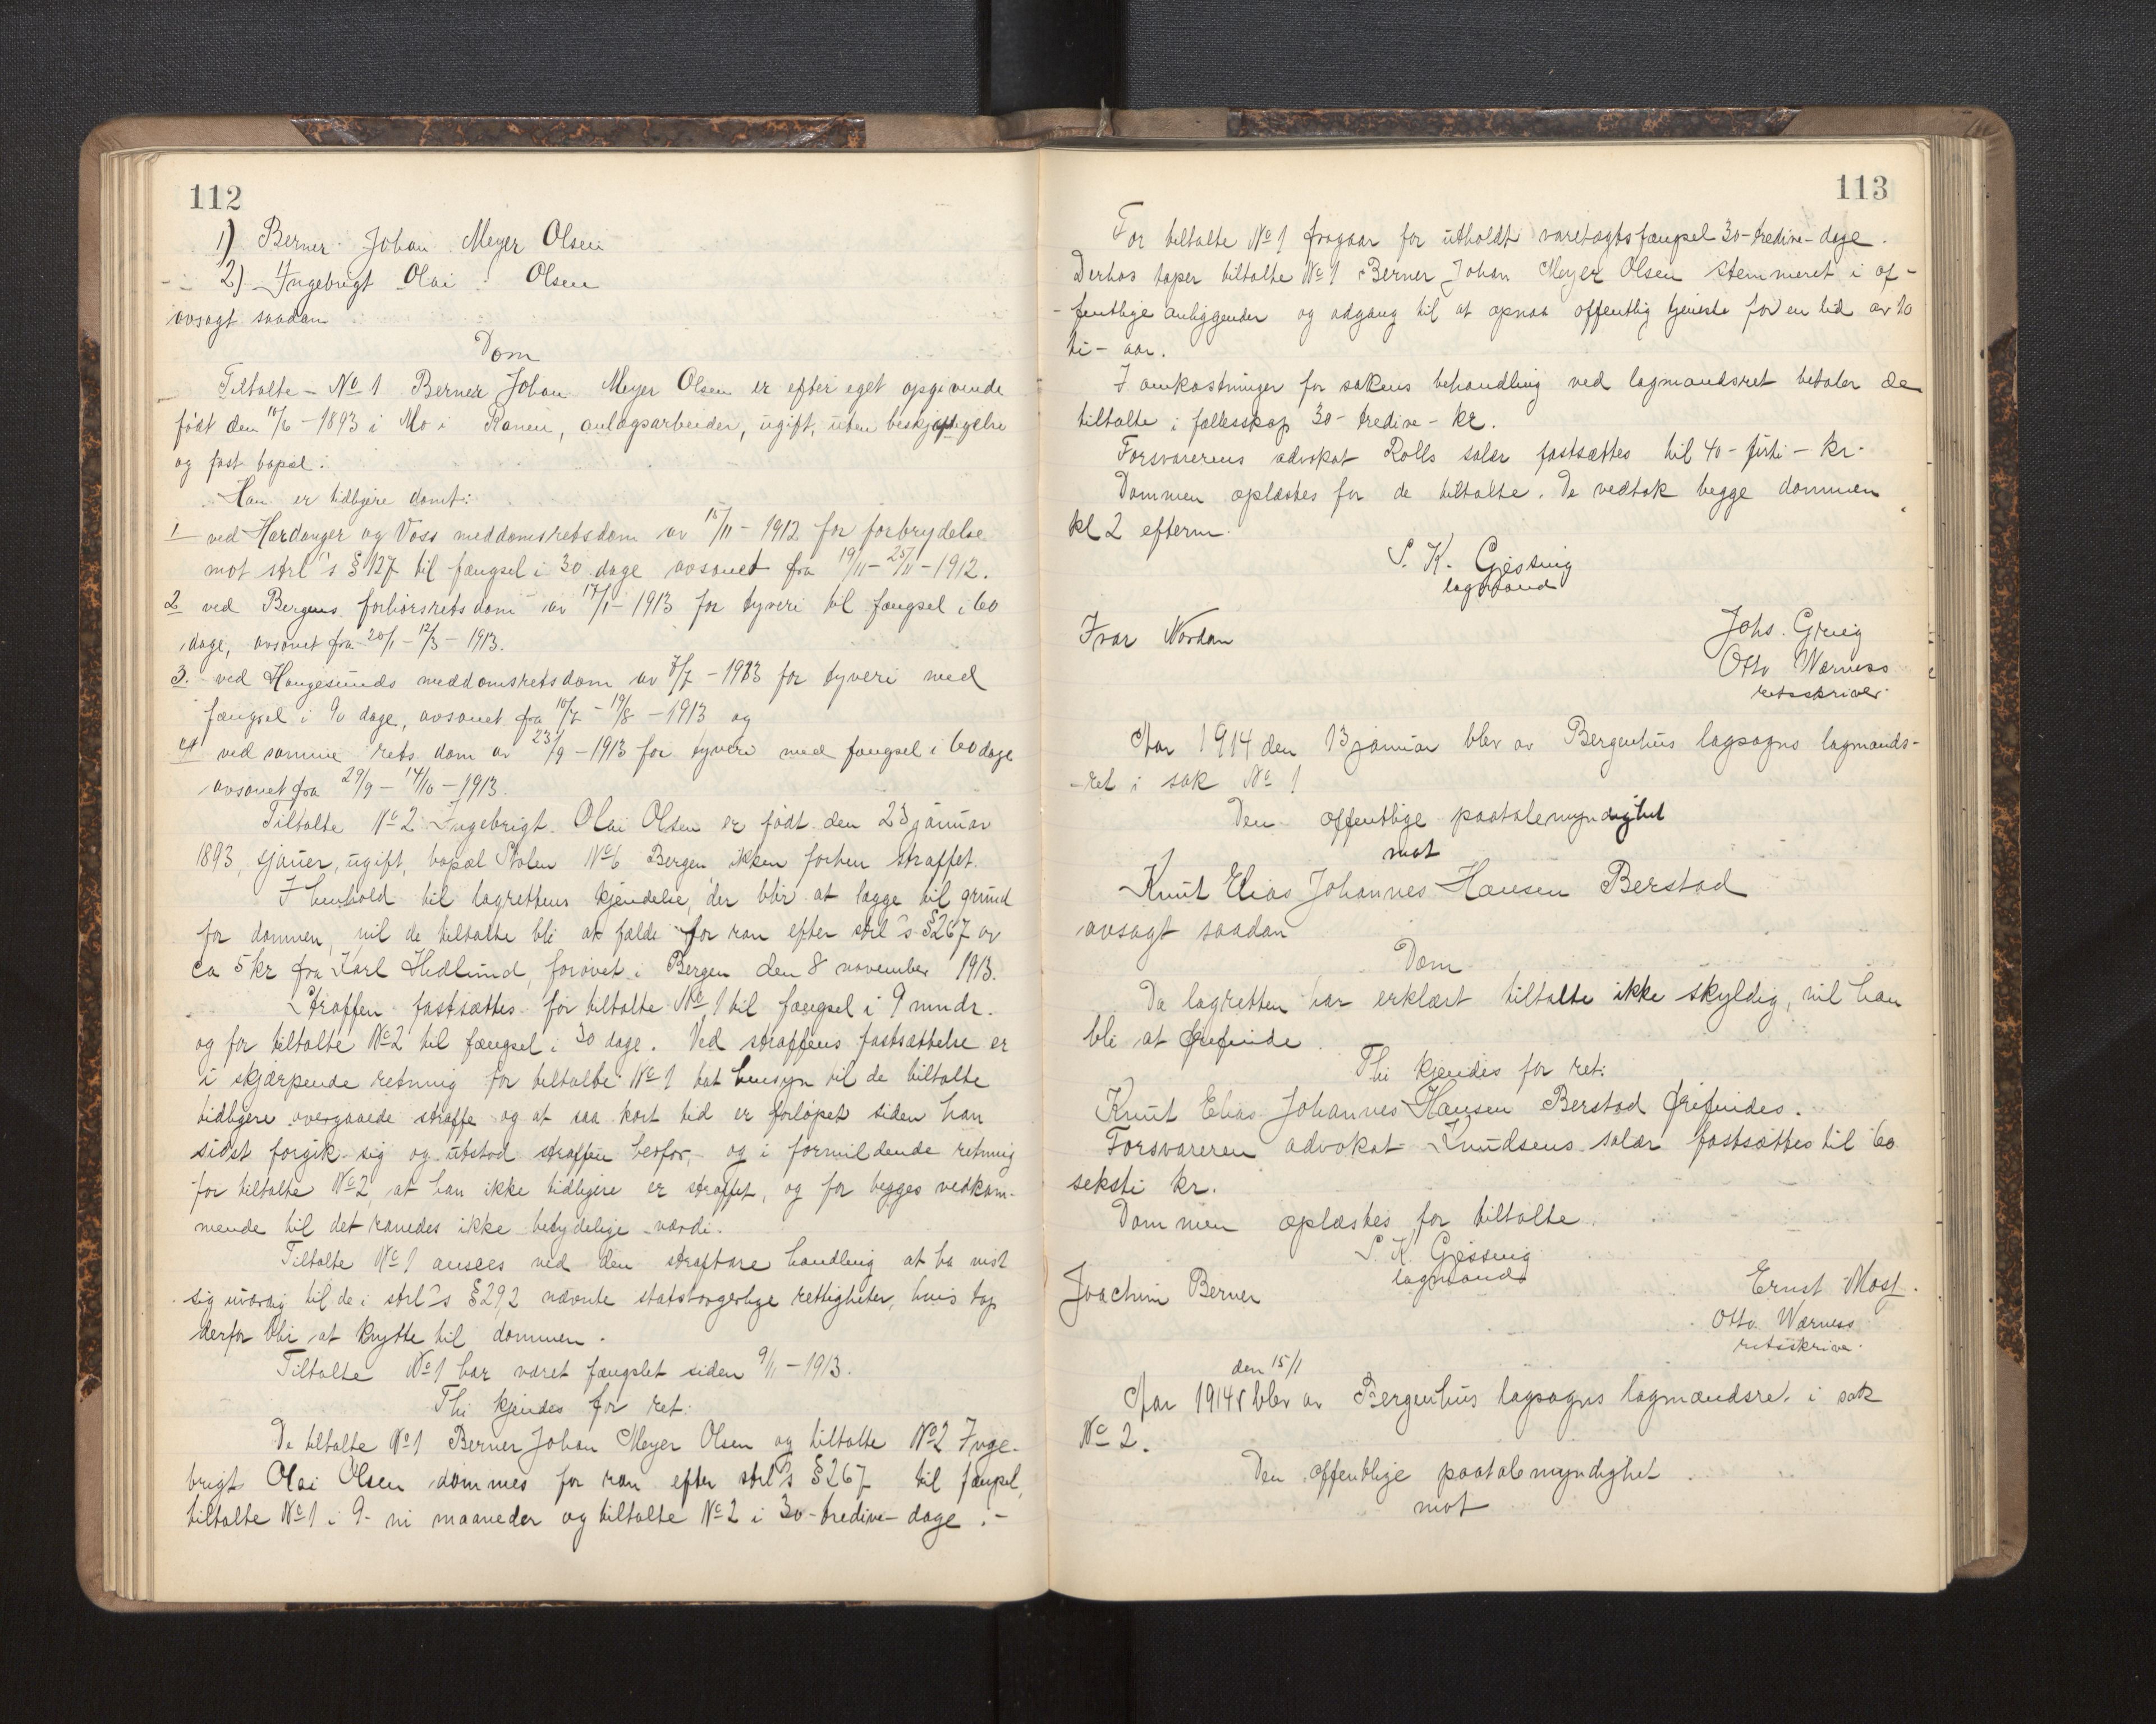 112
1) Berner Johan Meyer Olsen
2) Ingebrigt Olai Olsen
avsagt saadan
Dom
Tiltalte No 1 Berner Johan Meyer Olsen er efter eget opgivende
født den 10/6 - 1893 i Mo i Ranen, anlægsarbeider, ugift, uten beskjæftigelse
og fast bopæl.
Han er tidligere dømt:
1 ved Hardanger og Voss meddomsretsdom av 15/11 - 1912 for forbrydelse
mot strl's § 127 til fængsel i 30 dage avsonet fra 19/11 - 25/11 - 1912.
2 ved Bergens forhørsretsdom av 17/1 - 1913 for tyveri til fængsel i 60
dage, avsonet fra 20/1 - 12/3 - 1913.
3. ved Haugesunds meddomsretsdom av 7/7 - 1913 for tyveri med
fængsel i 90 dage, avsonet fra 10/7 - 19/8 - 1913 og
4 ved samme rets dom av 23/9 - 1913 for tyveri med fængsel i 60 dage
avsonet fra 29/9 - 14/10 - 1913.
Tiltalte No 2 Ingebrigt Olai Olsen er født den 23 januar
1893, sjauer, ugift, bopæl Stølen No 6 Bergen, ikke forhen straffet.
I henhold til lagrettens kjendelse, der blir at lægge til grund
for dommen, vil de tiltalte bli at fælde for ran efter strl's § 267 av
ca 5 kr fra Karl Hedlund, forøvet i Bergen den 8 november 1913.
Straffen fastsættes for tiltalte No 1 til fængsel i 9 mndr.
og for tiltalte No 2 til fængsel i 30 dage. Ved straffens fastsættelse er
i skjærpende retning for tiltalte No 1 tat hensyn til de tiltalte
tidligere overgaaede straffe og at saa kort tid er forløpet siden han
sidst forgik sig og utstod straffen herfor, og i formildende retning
for tiltalte No 2, at han ikke tidligere er straffet, og for begges vedkom-
mende til det ranedes ikke betydelige værdi.
Tiltalte No 1 ansees ved den straffbare handling at ha vist
sig uværdig til de i strl's § 292 nævnte statsborgerlige rettigheter, hvis tap
derfor blir at knytte til dommen.
Tiltalte No 1 har været fængslet siden 9/11 - 1913.
Thi kjendes for ret:
De tiltalte No 1 Berner Johan Meyer Olsen og tiltalte No 2 Inge-
brigt Olai Olsen dømmes for ran efter strl's § 267 til fængsel,
tiltalte No 1 i 9 - ni maaneder og tiltalte No 2 i 30 - tredive - dage. -
113
For tiltalte No 1 fragaar for utholdt varetægtsfængsel 30 - tredive - dage.
Derhos taper tiltalte No 1 Berner Johan Meyer Olsen stemmeret i of-
- fentlige anliggender og adgang til at opnaa offentlig tjeneste for en tid av 10
ti - aar.
I omkostninger for sakens behandling ved lagmandsret betaler de
tiltalte i fællesskap 30 - tredive - kr.
Forsvarerens advokat Rolls salær fastsættes til 40 - firti - kr.
Dommen oplæstes for de tiltalte. De vedtok begge dommen
kl 2 efterm.
S. K. Gjessing
lagmand
Ivar Nordan
Johs. Grieg
Otto Wærness
retsskriver.
Aar 1914 den 13 januar blev av Bergenhus lagsogns lagmands-
- ret i sak No 1
Den offentlige paatalemyndighet
mot
Knut Elias Johannes Hansen Berstad
avsagt saadan
Dom
Da lagretten har erklært tiltalte ikke skyldig, vil han
bli at frifinde.
Thi kjendes for ret:
Knut Elias Johannes Hansen Berstad frifindes.
Forsvareren advokat Knudsens salær fastsættes til 60
seksti kr.
Dommen oplæstes for tiltalte.
S. K. Gjessing
lagmand
Joachim Berner
Ernst Mosf.
Otto Wærness
retsskriver.
den 15/1
Aar 1914 blev av Bergenhus lagsogns lagmandsret i sak
No 2.
Den offentlige paatalemyndighet
mot